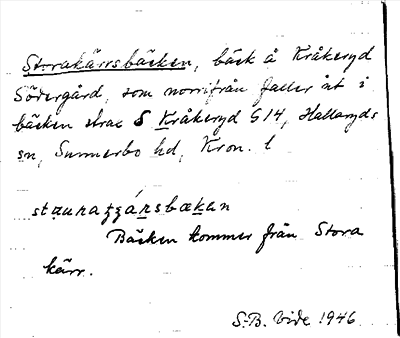 Storakärrsbäcken, bäck å Kråkeryd
Södergård, som norrifrån faller åt i
bäcken strax S Kråkeryd S14, Hallaryds
sn, Sunnerbo hd, Kron. l
Bäcken kommer från Stora
kärr.
S.B. Vide 1946